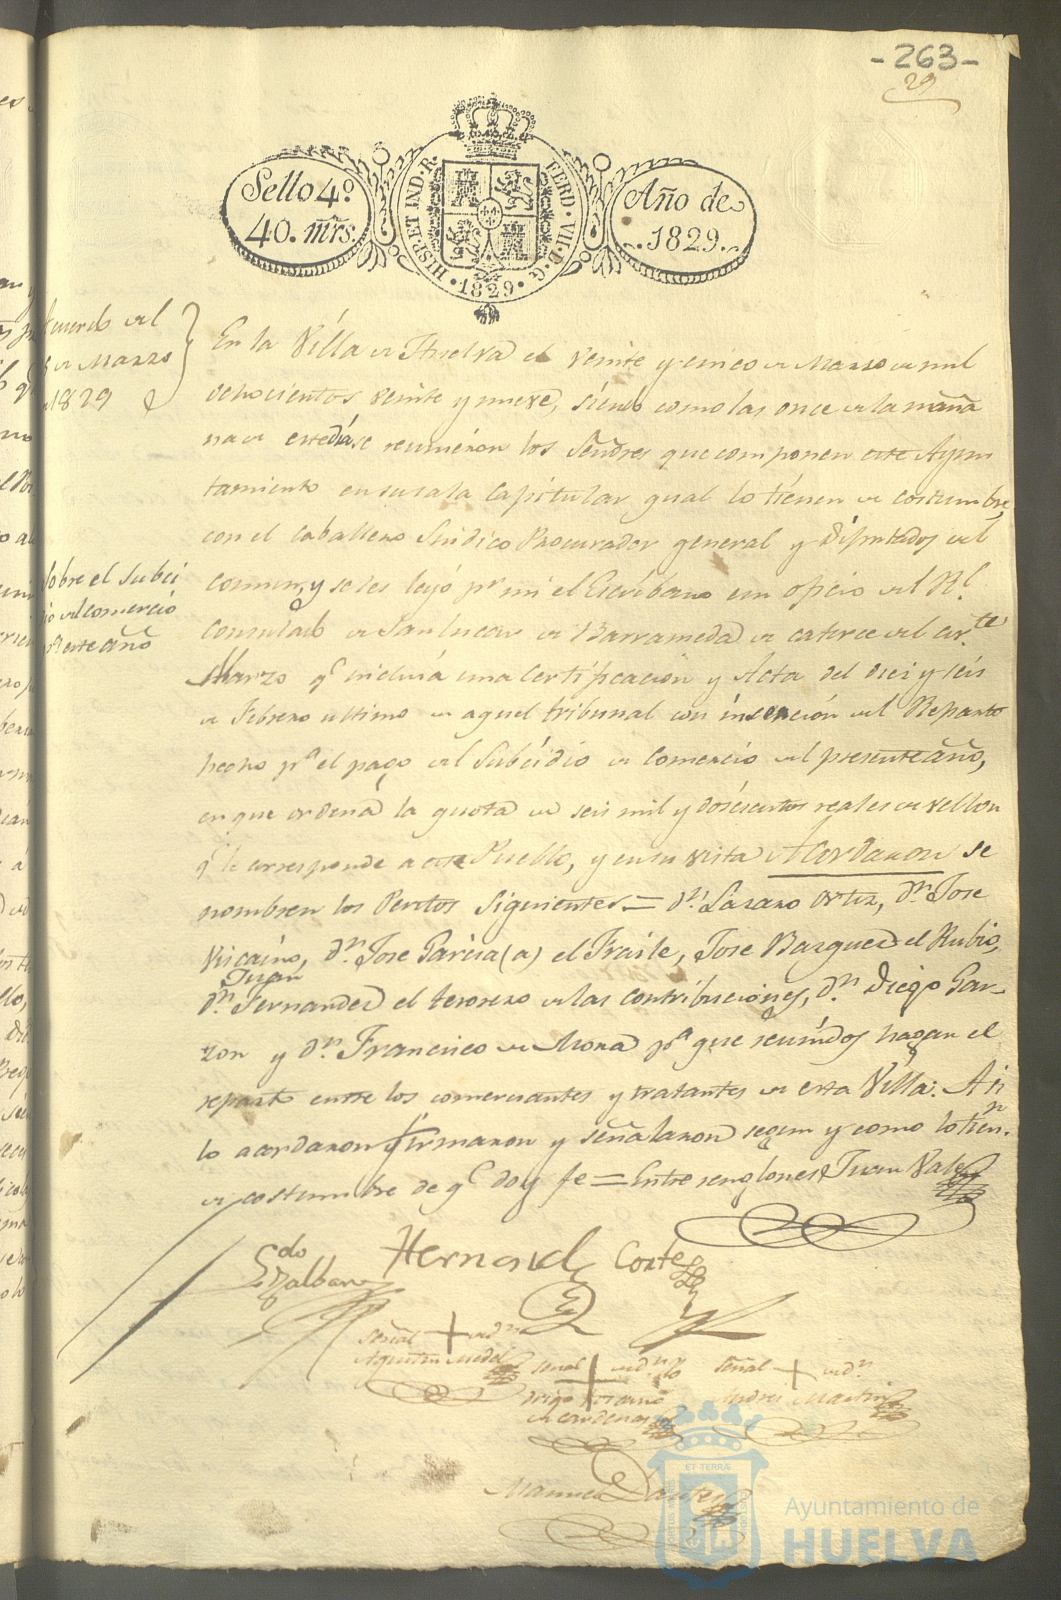 -263-
29
Sello 4º
40. mrs.
HISP. ET IND. R.
FERD. VII. D. G.
1829
Año de
1829.
Acuerdo del
de Marzo
1829
En la Villa de Huelva el veinte y cinco de Marzo de mil
ochocientos veinte y nueve, siendo como las once de la maña
na de este dia se reunieron los Señores que componen este Ayun
tamiento en su sala Capitular, qual lo tienen de costumbre,
con el Caballero Sindico Procurador general y Diputados del
Comun, y se les leyó pr. mi el Escribano un oficio del Rl.
Consulado de Sanlucar de Barrameda de catorce del corte.
Marzo qe. incluia una Certificacion y Acta del diez y seis
de Febrero ultimo de aquel tribunal con inserción del Reparto
hecho pa. el pago del Subsidio de Comercio del presente año,
en que ordena la quota de seis mil y doscientos reales de vellon
qe. le corresponde a este Pueblo, y en su vista Acordaron se
nombren los Peritos siguientes = Dn. Lázaro Ortiz, Dn. Jose
Viscaino, Dn. Jose Garcia (a) el Fraile, Jose Bazquez el Rubio,
Juan
Dn. Fernandez el tesorero de las contribuciones, Dn. Diego Gar-
zon y Dn. Francisco de Mora pa. que reunidos hagan el
reparto entre los comerciantes y tratantes de esta Villa: Asi
lo acordaron firmaron y señalaron segun y como lo tienn.
de costumbre de qe. doy fe = Entre renglones Juan Vale
Sobre el Subci
dio del comercio
de este año
Hernand Corte
Señal + de Dn.
Agustin
Señal + de Dn.
Diego
de Cardenas
Señal + de Dn.
Andres Martin
Manuel
Ayuntamiento de
HUELVA